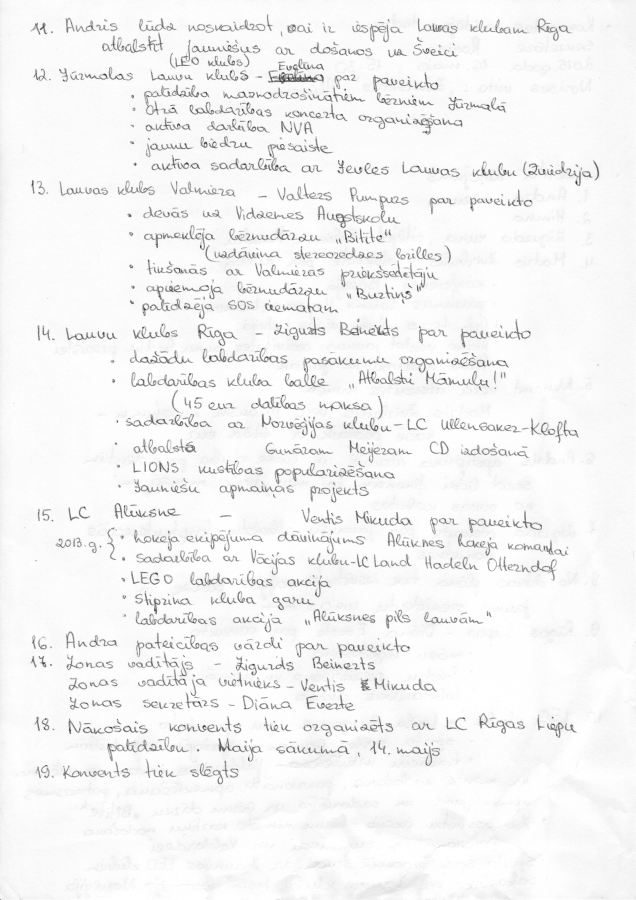 11. Andris lūdz noskaidrot, vai ir iespēja Lauvas klubam Rīga
atbalstīt jauniešus ar došanos uz Šveici
(LEO klubs) Evelīna
12. Jūrmalas Lauvu klubs - par paveikto
• palīdzība maznodrošinātiem bērniem Jūrmalā
• Otrā labdarības koncerta organizēšana
• aktīva darbība NVA
• jaunu biedru piesaiste
• aktīva sadarbība ar Jevles Lauvas klubu (Zviedrija)
13. Lauvas klubs Valmiera - Valters Pumpurs par paveikto
• devās uz Vidzemes Augstskolu
• apmeklēja bērnudārzu „Bitīte"
(uzdāvina stereoredzes brilles)
• tikšanās ar Valmieras priekšsēdētāju
• apciemoja bērnudārzu „Buratiņš"
• palīdzēja SOS ciematam
14. Lauvu klubs Rīga - Zigurds Beinerts par paveikto
• dažādu labdarības pasākumu organizēšana
• labdarības kluba balle „Atbalsti Māmuļu!"
(45 eur dalības maksa)
• sadarbība ar Norvēģijas klubu - LC Ullensaker-Kløfta
• atbalsts Gunāram Meijeram CD izdošanā
• LIONS kustības popularizēšana
• Jauniešu apmaiņas projekts
15. LC Alūksne - Ventis Mikuda par paveikto
2013.g. { • hokeja ekipējuma dāvinājums Alūknes hokeja komandai
• sadarbība ar Vācijas klubu - LC Land Hadeln Otterndof
• LEGO labdarības akcija
• Stiprina kluba garu
• labdarības akcija „Alūksnes pils lauvām"
16. Andra pateicības vārdi par paveikto
17. Zonas vadītājs - Zigurds Beinerts
Zonas vadītāja vietnieks - Ventis Mikuda
Zonas sekretārs - Diāna Everte
18. Nākošais konvents tiek organizēts ar LC Rīgas Liepu
palīdzību. Maija sākumā, 14. maijs
19. Konvents tiek slēgts